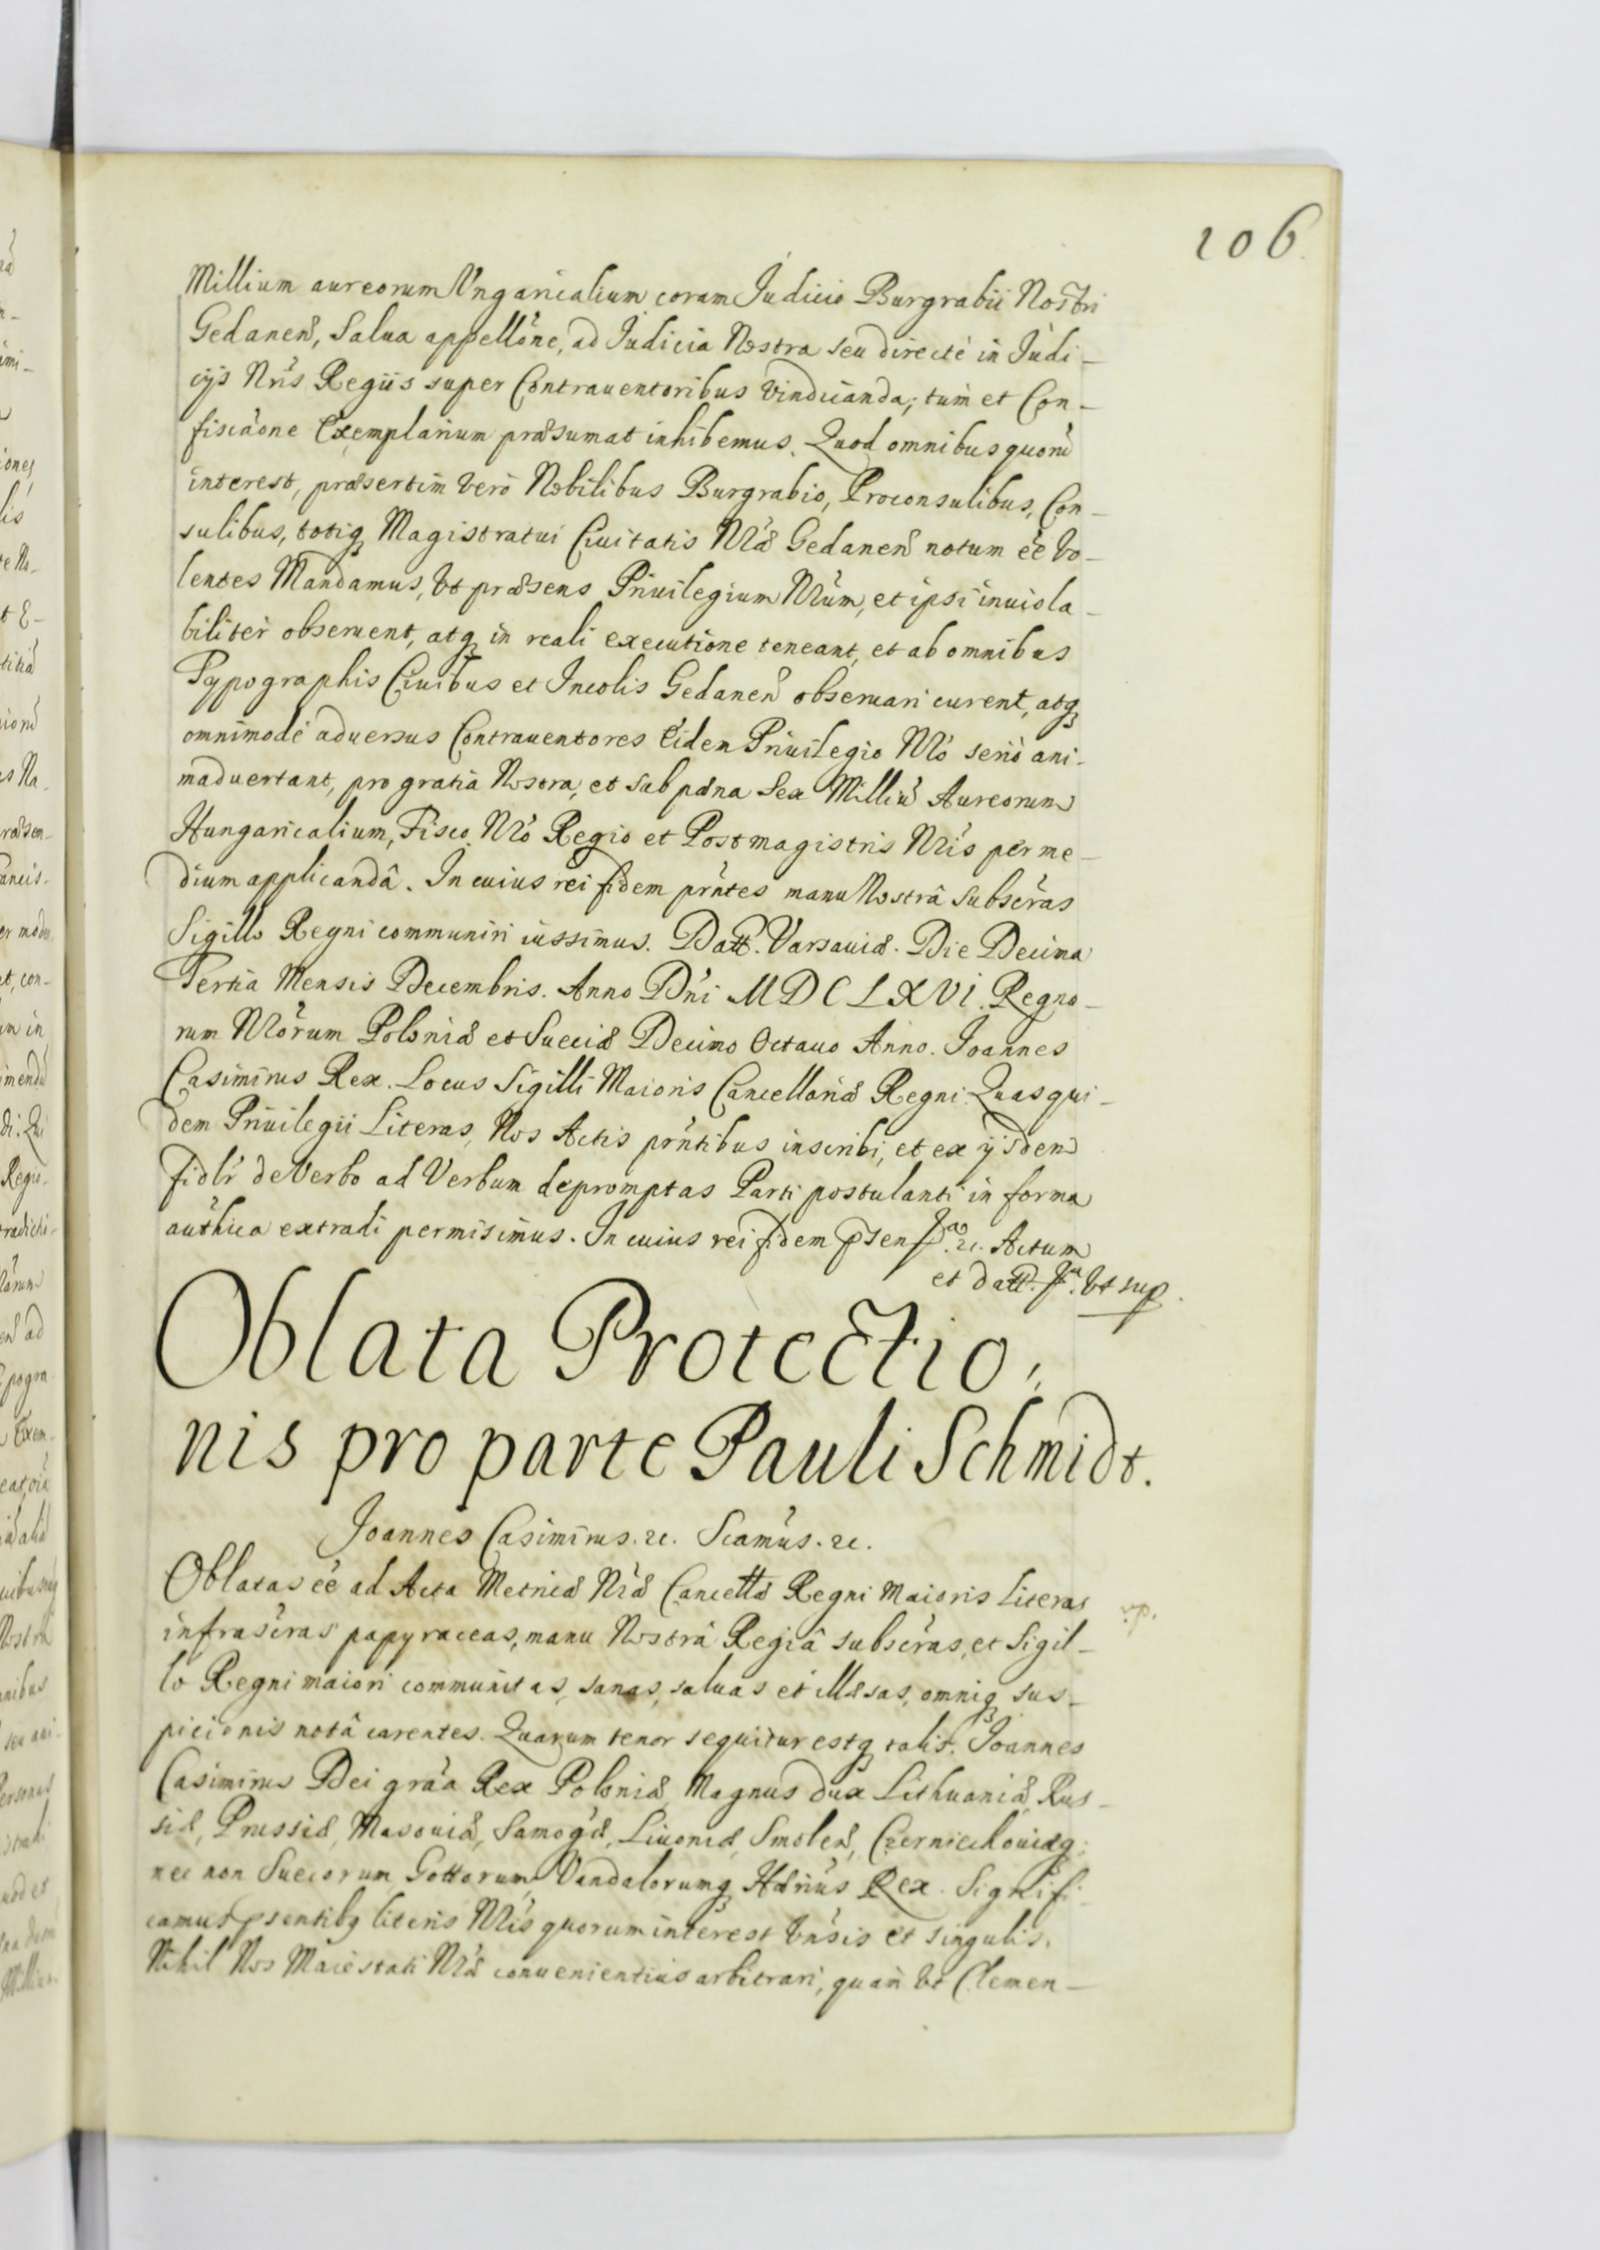 106.
Millium aureorum Ungaricalium coram Judicio Burgrabii Nostri
Gedanen̄, Salua appellõne, ad Judicia Nostra seu directè in Judi-
cijs Nrĩs Regiis super Contrauentoribus Vindicanda; tum et Con-
fiscãone Exemplarium præsumat inhibemus. Quod omnibus quorũ
interest, præsertim verò Nobilibus Burgrabio, Proconsulibus, Con-
sulibus, totiq̨ Magistratui Ciuitatis Nræ̃ Gedanen̄ notum eẽ Vo-
lentes Mandamus, Vt præsens Priuilegium Nrũm, et ipsi inuiola-
biliter obseruent, atq̨ in reali executione teneant, et ab omnibus
Typographis Ciuibus et Incolis Gedanen̄ obseruari curent, atq̨
omnimodè aduersus Contrauentores Eidem Priuilegio Nrõ seriò ani-
maduertant, pro gratia Nostra, et sub pæna Sex Milliũ Aureorum
Hungaricalium, Fisco Nrõ Regio et Postmagistris Nrĩs per me-
dium applicandâ. In cuius rei fidem prñtes manu Nostrâ Subscr̃as
Sigillo Regni communiri iussimus. Datt. Varsauiæ. Die Decima
Tertia Mensis Decembris. Anno Dñi MDCLXVI. Regno-
rum Nrõrum Poloniæ et Sueciæ Decimo Octauo Anno. Joannes
Casimirus Rex. Locus Sigilli Maioris Cancellariæ Regni. Quas qui-
dem Priuilegii Literas, Nos Actis prñtibus inscribi, et ex ijsdem
fidlr̃ de Verbo ad Verbum depromptas Parti postulanti in forma
authĩca extradi permisimus. In cuius rei fidem p̄sen. &c. Actum
et datt. Vt sup.
Oblata Protectio,
nis pro parte Pauli Schmidt.
Joannes Casimirus. &c. Scamũs. &c.
Oblatas eẽ ad Acta Metricæ Nræ̃ Cancellæ Regni Maioris Literas
infrascr̃as papyraceas, manu Nostrâ Regiâ subscr̃as, et Sigil-
lo Regni maiori communitas, sanas, saluas et illæsas, omniq̨ sus-
picionis notâ carentes. Quarum tenor sequitur estq̨ talis. Joannes
Casimirus Dei grãa Rex Poloniæ, Magnus dux Lithuaniæ, Rus-
siæ, Prussiæ, Masouiæ, Samogæ̃, Liuoniæ, Smolen̄, Czernichouiæq̨
nec non Suecorum Gottorum Vandalorumq̨ Hærius̃ Rex. Signifi-
camus p̄sentibq̨ literis Nrĩs quorum interest Vnũsis et singulis.
Nihil Nos Maiestati Nræ̃ conuenientius arbitrari, quam Vt Clemen-